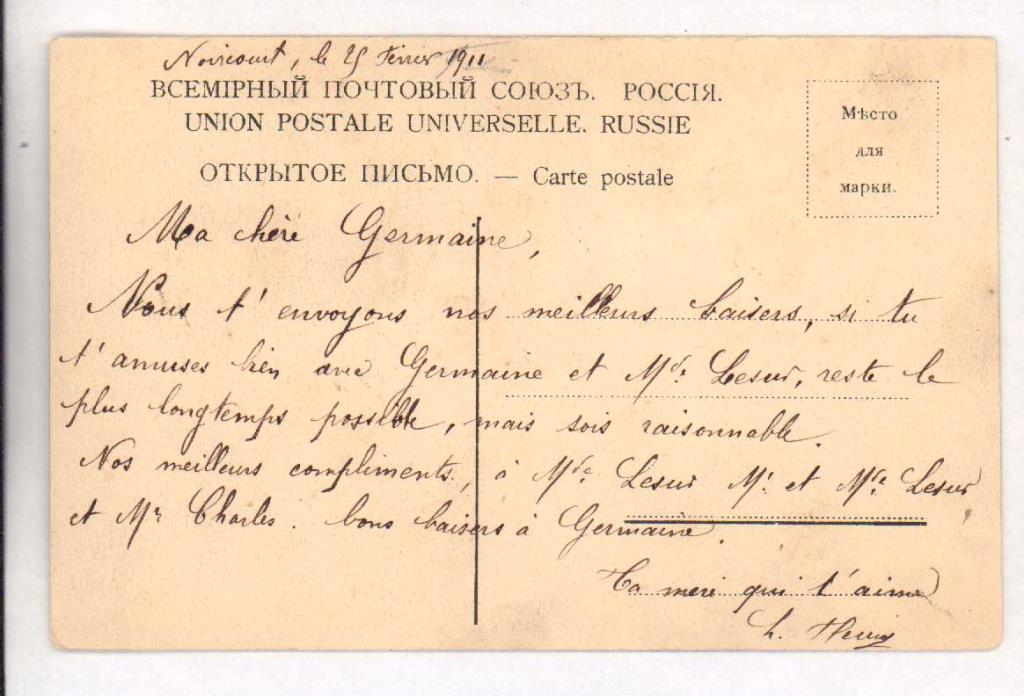 Noircourt, le 25 Février 1911
ВСЕМІРНЫЙ ПОЧТОВЫЙ СОЮЗЪ. РОССІЯ.
UNION POSTALE UNIVERSELLE. RUSSIE
ОТКРЫТОЕ ПИСЬМО. — Carte postale
Мѣсто
для
марки.
Ma chère Germaine,
Nous t'envoyons nos meilleurs baisers, si tu
t'amuses bien avec Germaine et Mde. Lesur, reste le
plus longtemps possible, mais sois raisonnable.
Nos meilleurs compliments, à Mde. Lesur Mr. et Mde. Lesur
et Mr Charles. bons baisers à Germaine.
Ta mère qui t'aime